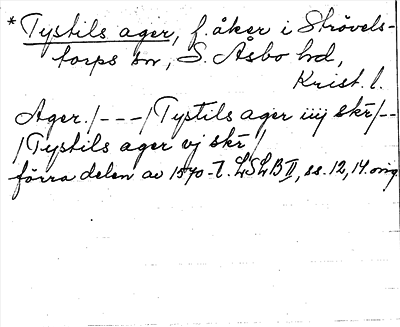 * Tystils ager, f. åker i Strövels-
torps sn, S. Åsbo hd,
Krist. l.
Ager. /---/ Tystils ager iiij skr /--
/ Tystils ager vj skr /
förra delen av 1570-t. LSLB II, ss. 12, 14. orig.